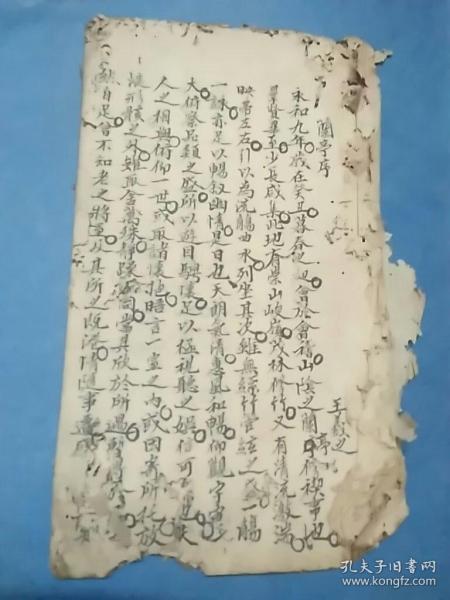 蘭亭序
王羲之
永和九年歲在癸丑暮春之初會於會稽山陰之蘭亭修禊事也
群賢畢至少長咸集此地有崇山峻嶺茂林修竹又有清流激湍
映帶左右引以為流觴曲水列坐其次雖無絲竹管絃之盛一觴
一詠亦足以暢敘幽情是日也天朗氣清惠風和暢仰觀宇宙之
大俯察品類之盛所以遊目騁懷足以極視聽之娛信可樂也夫
人之相與俯仰一世或取諸懷抱晤言一室之內或因寄所託放
浪形骸之外雖取舍萬殊靜躁不同當其欣於所遇
然自足曾不知老之將至及其所之既倦情隨事遷
孔夫子旧书网
www.kongfz.com